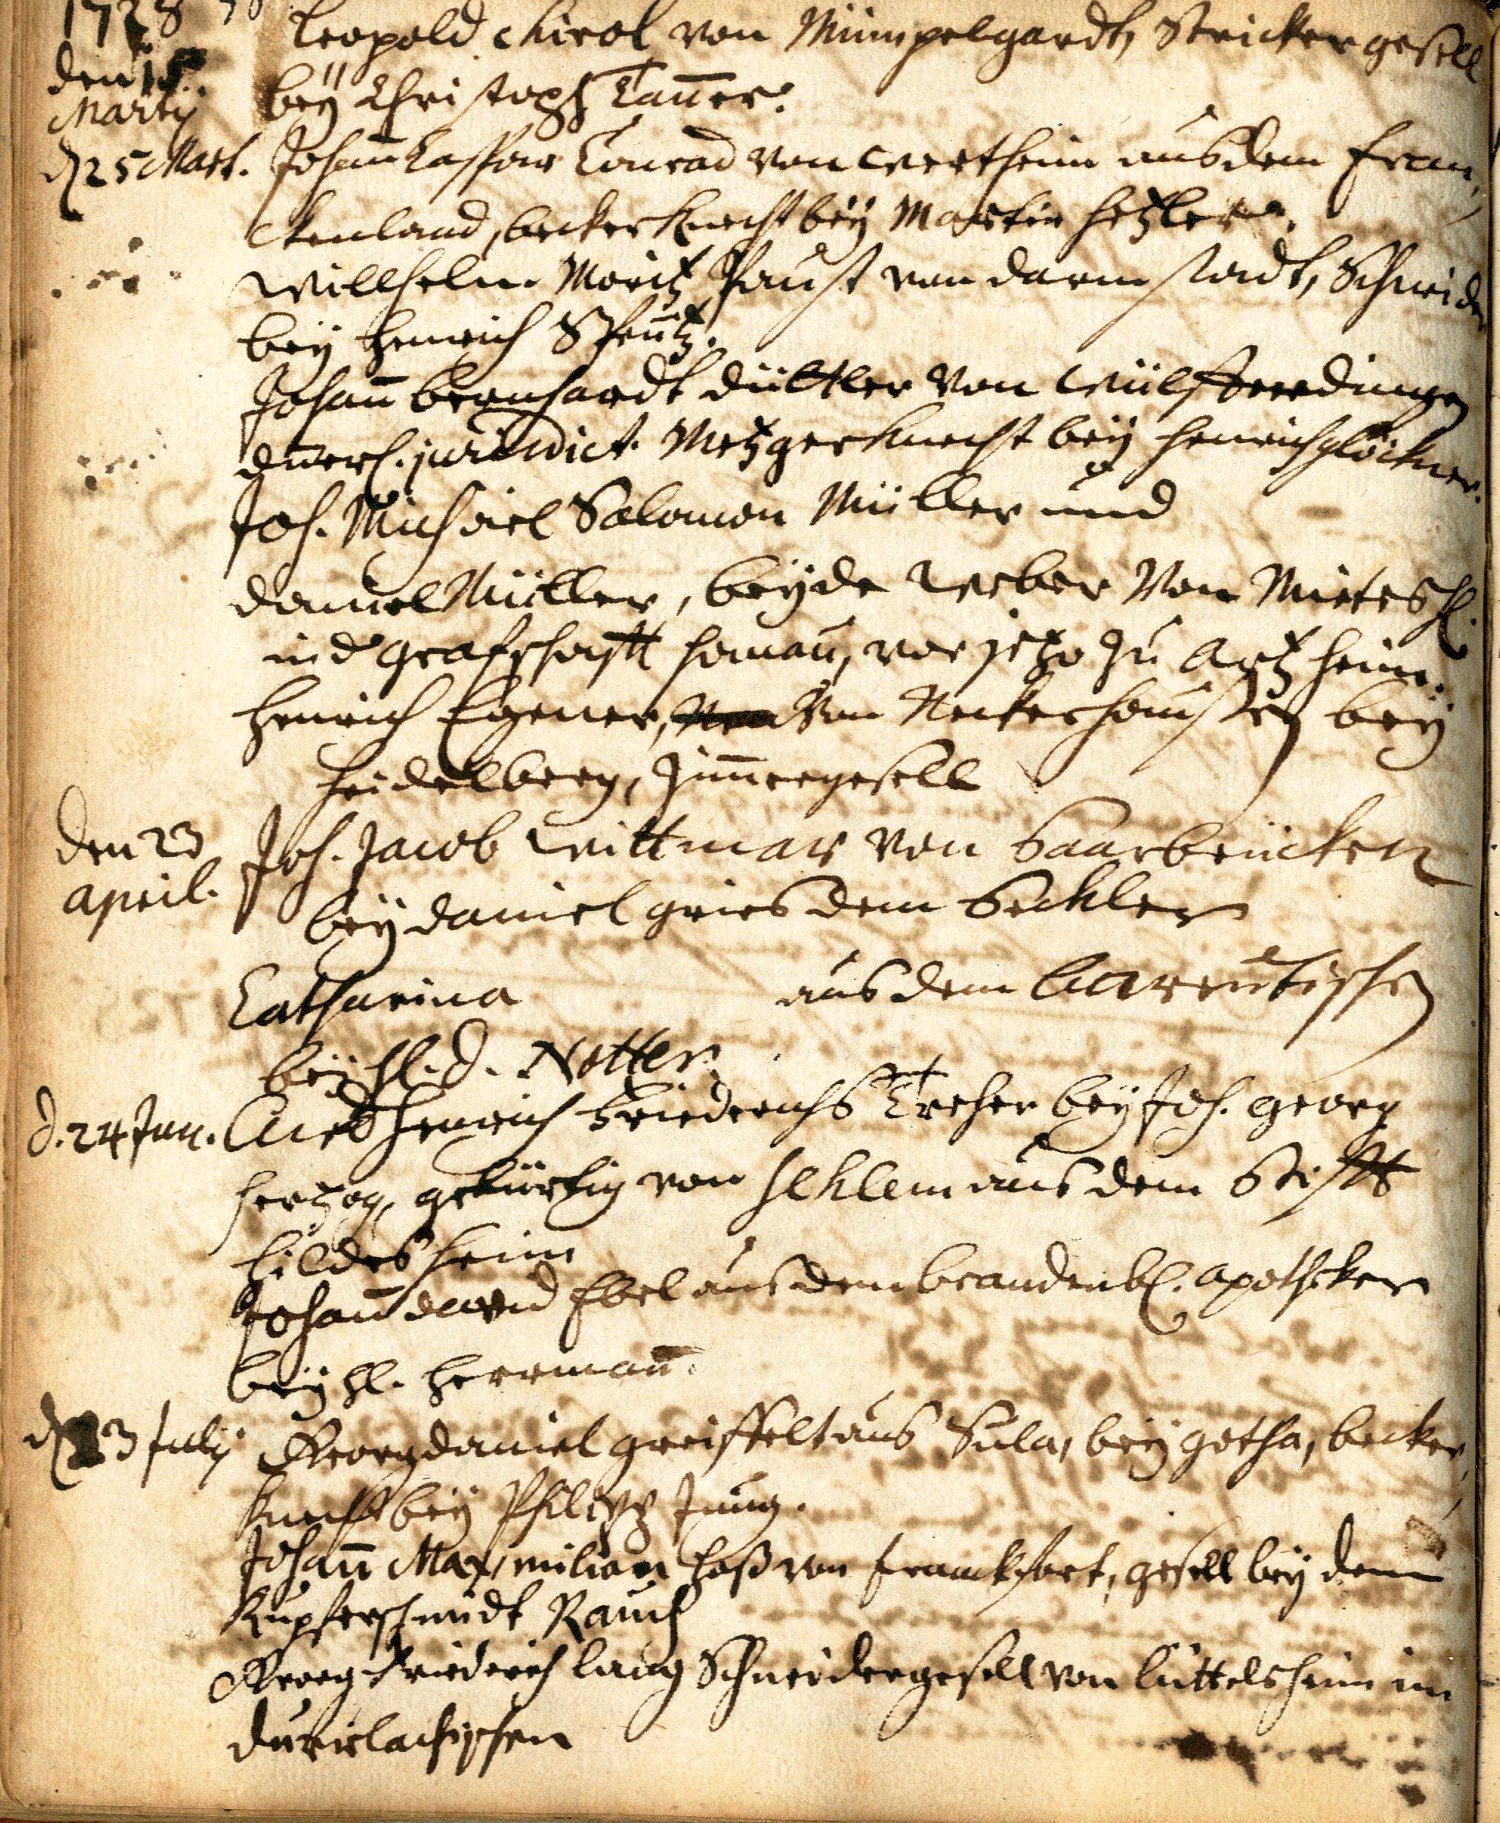 1728
den 15.
Martÿ
Leopold Chirol von Mümpelgardt, Strickergesell
beÿ Christoph Tan̄er.
d 25 Mart. Johan̄ Caspar Conrad von Wertheim aus dem Fran,
ckenland, beckerknecht beÿ Martin Hetzler.
Willhelm Moritz Faust von Darmstadt, Schneider
beÿ Henrich
Johan̄ Bernhardt von
jurisdict. Metzgerknecht beÿ Henrich Glöckner.
Joh. Michael Salomon Müller und
Daniel Müller, beÿde Weber von Mietesh.
in d Grafschafft Hanau, vor jetzo zu Artzheim.
Henrich Egener, von Neckerhaussen beÿ
Heidelberg, Zim̄ergesell
den 23
April.
Joh. Jacob Wittmar von Saarbrücken
beÿ Daniel Gries dem Seckler
Catharina aus dem Bareutischen
beÿ H. D. Notter.
d. 24 Jun. Henrich Friederichs Treher beÿ Joh. Georg
Hertzog, gebürtig von Sehlem aus dem Stifft
Hildesheim
Johan̄ David Ebel aus dem Brandenb. Apothecker
beÿ H. Herrman̄.
d 3 Julÿ Georg Daniel Greiffelt aus Sula, beÿ Gotha, becker,
knecht beÿ Philipp Jung.
Johan̄ Maxmilian Haß von Franckfort, gesell beÿ dem
Kupferschmidt Rauch
Georg Friederich Lang Schneidergesell von Lüttelsheim im
Durrlachischen